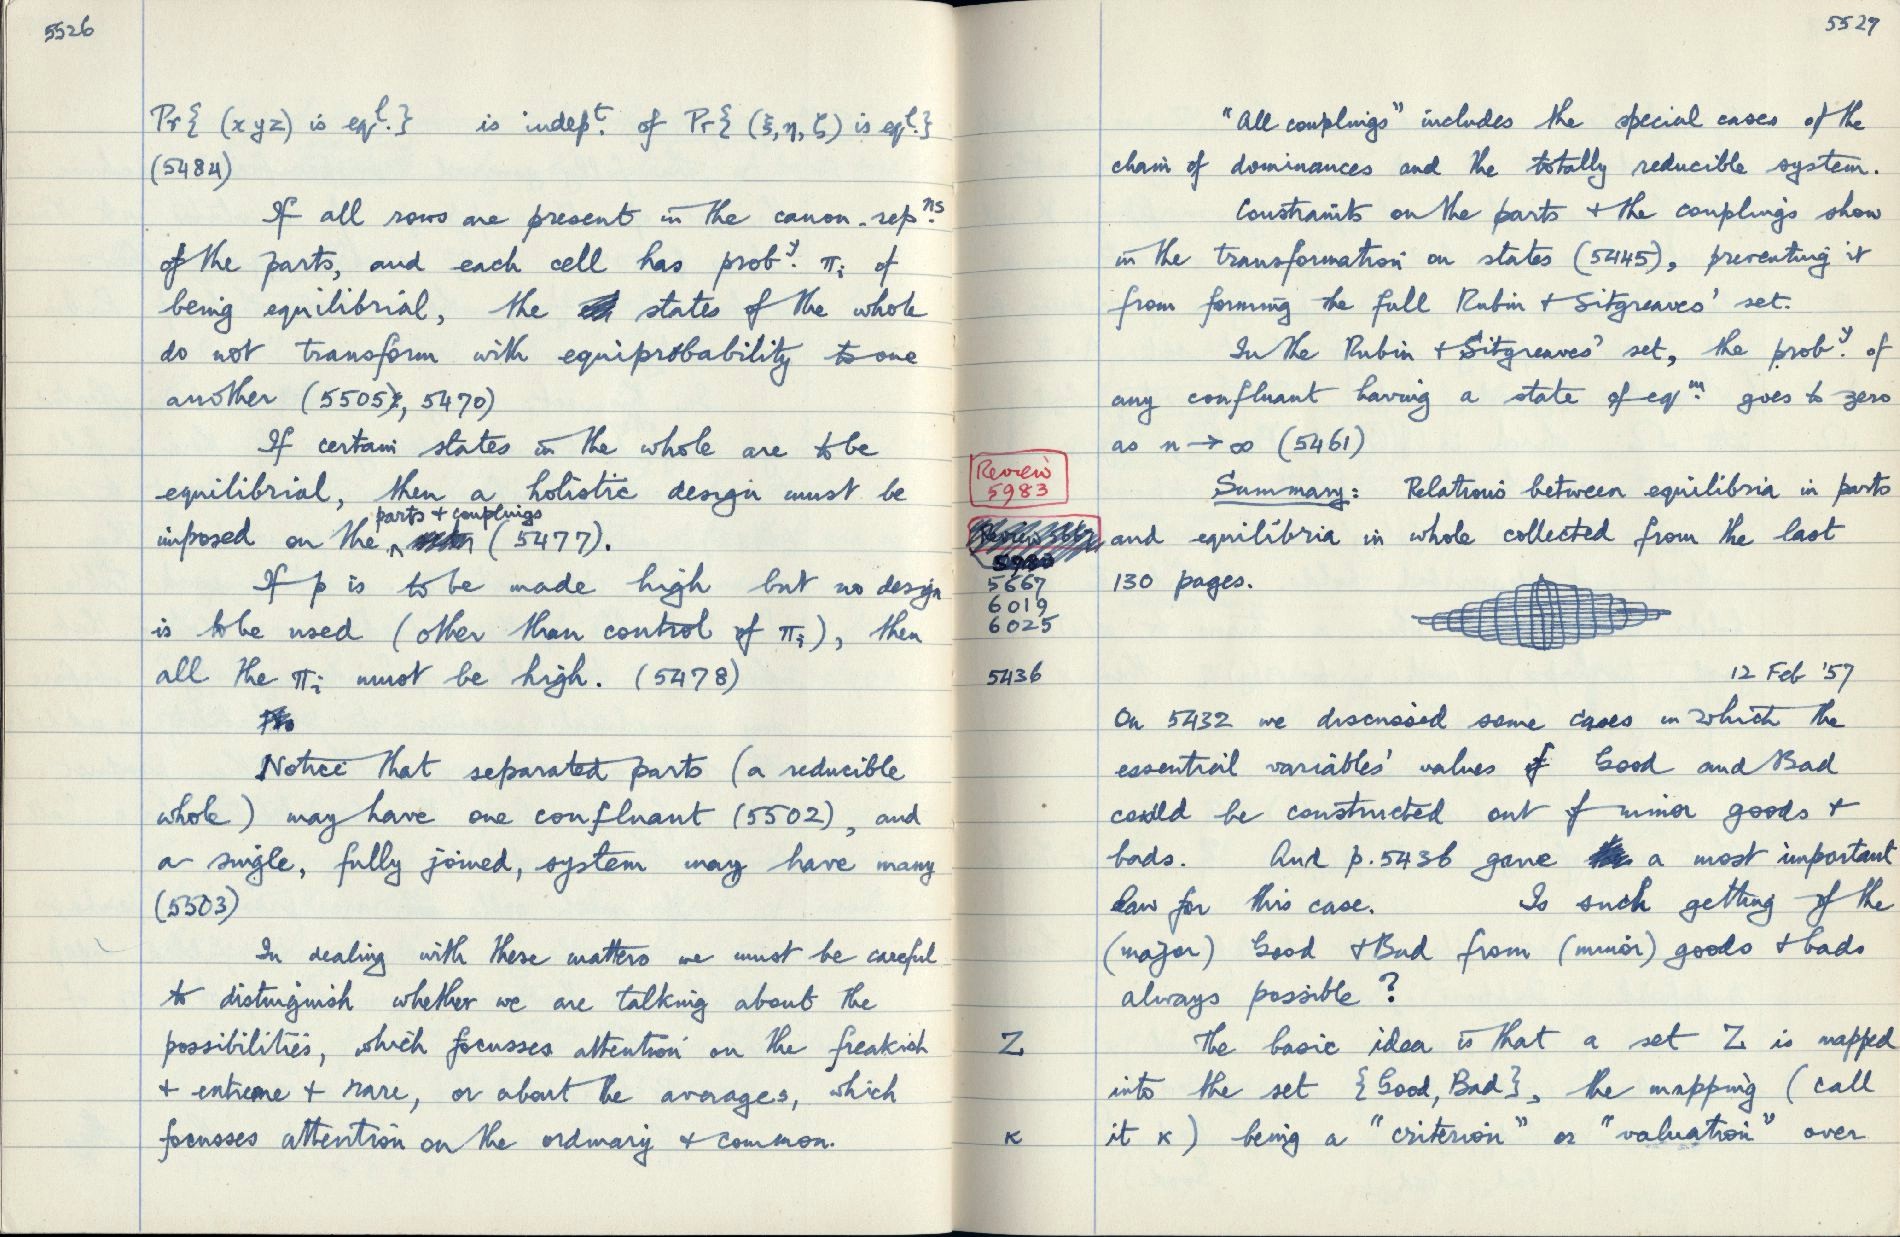 5526
Pr{ (x y z) is eq^l.} is indep^t. of Pr{ (ξ, η, ζ) is eq^l.}
(5484)
If all rows are present in the canon. rep^ns.
of the parts, and each cell has prob^y. π_i of
being equilibrial, the states of the whole
do not transform with equiprobability to one
another (5505, 5470)
If certain states in the whole are to be
equilibrial, then a holistic design must be
parts + couplings
imposed on the ^ (5477).
If p is to be made high but no design
is to be used (other than control of π_i), then
all the π_i must be high. (5478)
Notice that separated parts (a reducible
whole) may have one confluant (5502), and
a single, fully joined, system may have many
(5503)
In dealing with these matters we must be careful
to distinguish whether we are talking about the
possibilities, which focusses attention on the freakish
+ extreme + rare, or about the averages, which
focusses attention on the ordinary + common.
5527
"All couplings" includes the special cases of the
chain of dominances and the totally reducible system.
Constraints on the parts + the couplings show
in the transformation on states (5445), preventing it
from forming the full Rubin + Sitgreaves' set.
In the Rubin + Sitgreaves' set, the prob^y. of
any confluant having a state of eq^m. goes to zero
as n → ∞ (5461)
Review
5983
Summary: Relations between equilibria in parts
and equilibria in whole collected from the last
130 pages.
5667
6019
6025
12 Feb '57
5436
On 5432 we discussed some cases in which the
essential variables' values of Good and Bad
could be constructed out of minor goods +
bads. And p. 5436 gave a most important
law for this case. Is such getting of the
(major) Good + Bad from (minor) goods + bads
always possible?
Z
The basic idea is that a set Z is mapped
into the set {Good, Bad}, the mapping (call
κ
it κ) being a "criterion" or "valuation" over